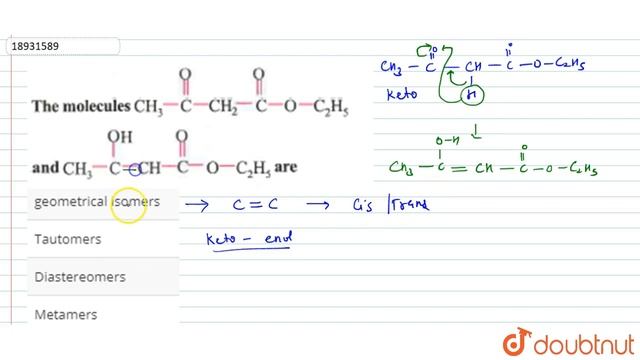 18931589
The molecules CH₃—C(=O)—CH₂—C(=O)—O—C₂H₅
and CH₃—C(OH)=CH—C(=O)—O—C₂H₅ are
geometrical isomers
Tautomers
Diastereomers
Metamers
CH₃—C(=O)—CH(H)—C(=O)—O—C₂H₅
Keto
↓
CH₃—C(O-H)=CH—C(=O)—O—C₂H₅
→ C=C → Cis |Trans
Keto - enol
doubtnut